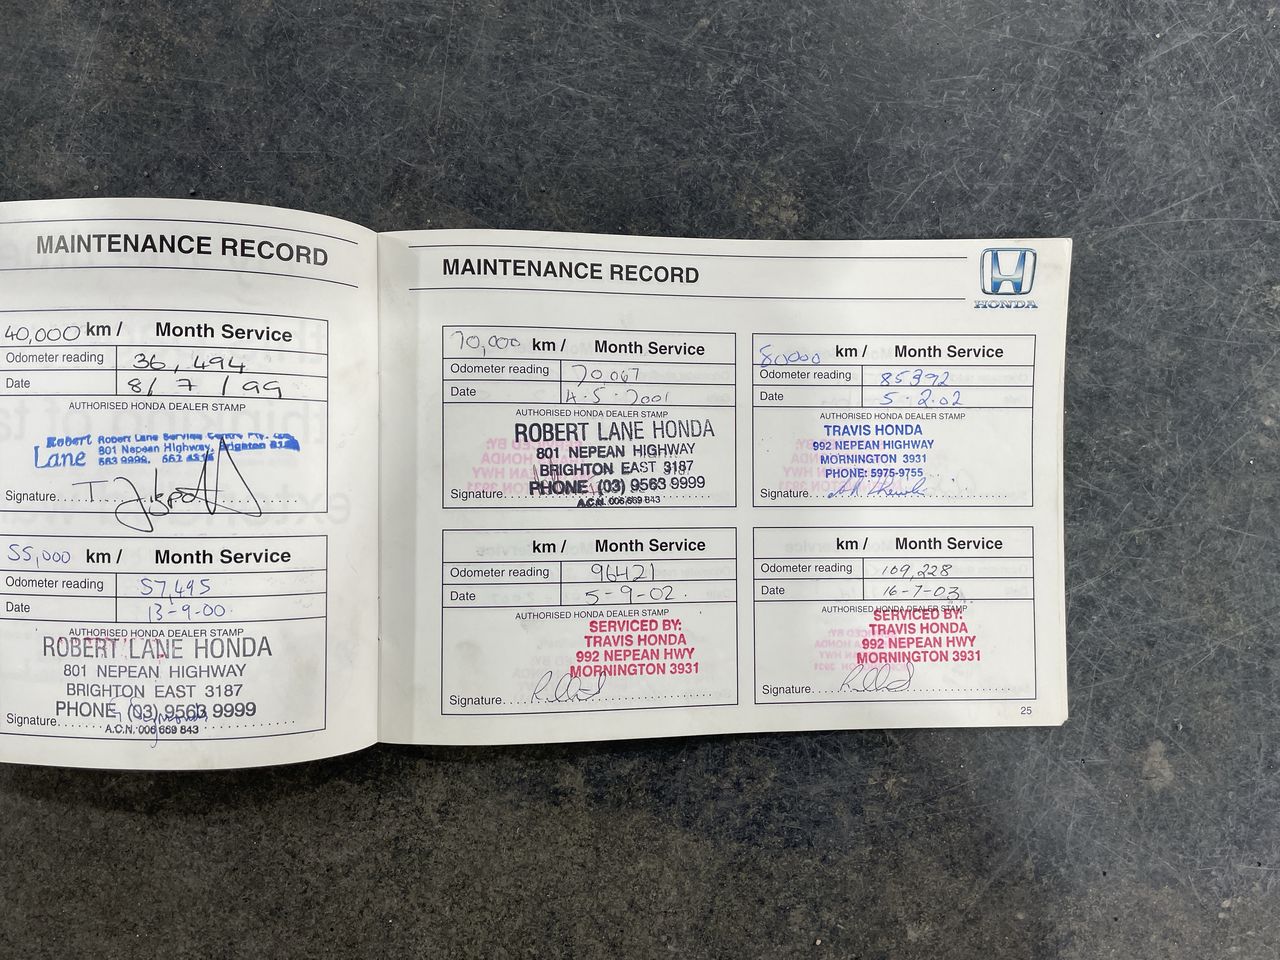 MAINTENANCE RECORD
40,000 km / Month Service
Odometer reading 36,494
Date 8/7/99
AUTHORISED HONDA DEALER STAMP
Robert Lane
Robert Lane Service Centre Pty. Ltd.
801 Nepean Highway, Brighton East
563 9999.
Signature
55,000 km / Month Service
Odometer reading 57,495
Date 13-9-00.
AUTHORISED HONDA DEALER STAMP
ROBERT LANE HONDA
801 NEPEAN HIGHWAY
BRIGHTON EAST 3187
PHONE (03) 9563 9999
Signature
A.C.N. 006 669 843
MAINTENANCE RECORD
HONDA
70,000 km / Month Service
Odometer reading 70,067
Date 4.5.2001
AUTHORISED HONDA DEALER STAMP
ROBERT LANE HONDA
801 NEPEAN HIGHWAY
BRIGHTON EAST 3187
PHONE (03) 9563 9999
Signature
A.C.N. 006 669 843
80000 km / Month Service
Odometer reading 85392
Date 5.2.02
AUTHORISED HONDA DEALER STAMP
TRAVIS HONDA
992 NEPEAN HIGHWAY
MORNINGTON 3931
PHONE: 5975-9755
Signature
km / Month Service
Odometer reading 96421
Date 5-9-02.
AUTHORISED HONDA DEALER STAMP
SERVICED BY:
TRAVIS HONDA
992 NEPEAN HWY
MORNINGTON 3931
Signature
km / Month Service
Odometer reading 109,228
Date 16-7-03.
AUTHORISED HONDA DEALER STAMP
SERVICED BY:
TRAVIS HONDA
992 NEPEAN HWY
MORNINGTON 3931
Signature
25